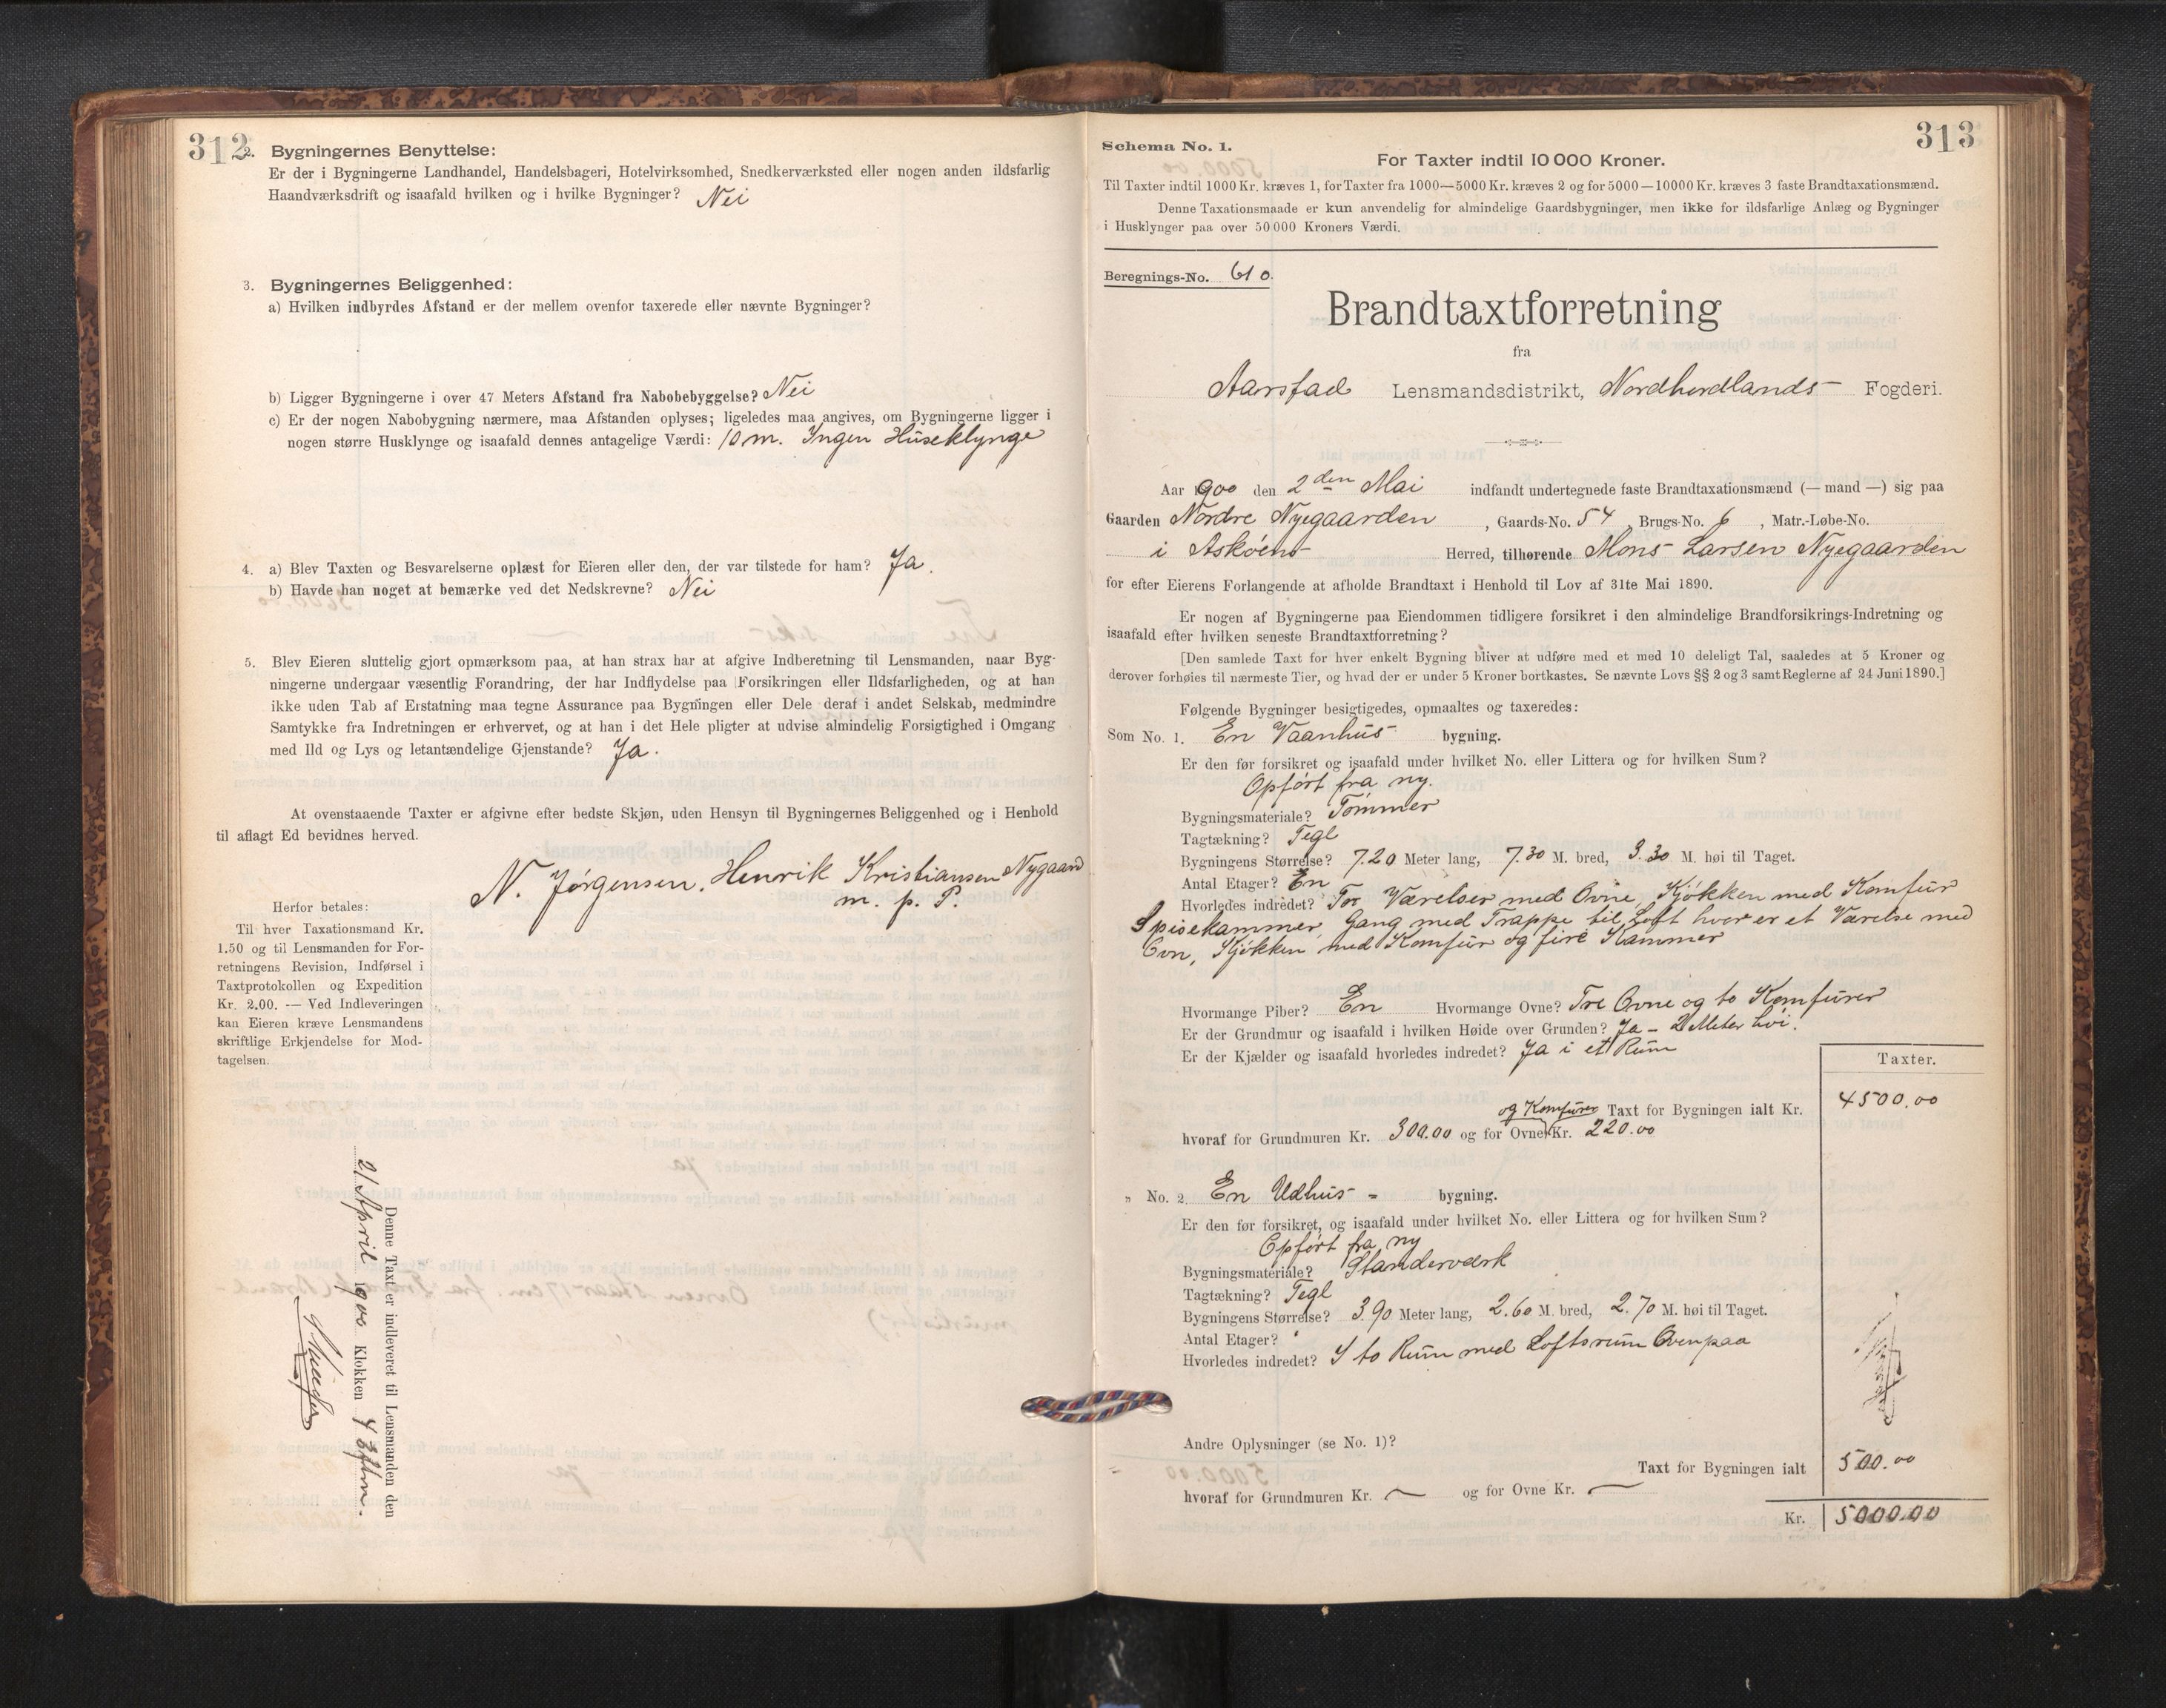 312
2. Bygningernes Benyttelse:
Er der i Bygningerne Landhandel, Handelsbageri, Hotelvirksomhed, Snedkerværksted eller nogen anden ildsfarlig
Haandværksdrift og isaafald hvilken og i hvilke Bygninger? Nei
3. Bygningernes Beliggenhed:
a) Hvilken indbyrdes Afstand er der mellem ovenfor taxerede eller nævnte Bygninger?
b) Ligger Bygningerne i over 47 Meters Afstand fra Nabobebyggelse? Nei
c) Er der nogen Nabobygning nærmere, maa Afstanden oplyses; ligeledes maa angives, om Bygningerne ligger i
nogen større Husklynge og isaafald dennes antagelige Værdi: 10 m. Ingen Huseklynge
4. a) Blev Taxten og Besvarelserne oplæst for Eieren eller den, der var tilstede for ham? Ja.
b) Havde han noget at bemærke ved det Nedskrevne? Nei
5. Blev Eieren sluttelig gjort opmærksom paa, at han strax har at afgive Indberetning til Lensmanden, naar Byg-
ningerne undergaar væsentlig Forandring, der har Indflydelse paa Forsikringen eller Ildsfarligheden, og at han
ikke uden Tab af Erstatning maa tegne Assurance paa Bygningen eller Dele deraf i andet Selskab, medmindre
Samtykke fra Indretningen er erhvervet, og at han i det Hele pligter at udvise almindelig Forsigtighed i Omgang
med Ild og Lys og letantændelige Gjenstande? Ja.
At ovenstaaende Taxter er afgivne efter bedste Skjøn, uden Hensyn til Bygningernes Beliggenhed og i Henhold
til aflagt Ed bevidnes herved.
N. Jørgensen. Henrik Kristiansen Nygaard
m. p. P.
Herfor betales:
Til hver Taxationsmand Kr.
1.50 og til Lensmanden for For-
retningens Revision, Indførsel i
Taxtprotokollen og Expedition
Kr. 2.00. — Ved Indleveringen
kan Eieren kræve Lensmandens
skriftlige Erkjendelse for Mod-
tagelsen.
Denne Taxt er indleveret til Lensmanden den
21 April 1900 Klokken 4 Eftm.
313
Schema No. 1.
For Taxter indtil 10 000 Kroner.
Til Taxter indtil 1000 Kr. kræves 1, for Taxter fra 1000—5000 Kr. kræves 2 og for 5000—10000 Kr. kræves 3 faste Brandtaxationsmænd.
Denne Taxationsmaade er kun anvendelig for almindelige Gaardsbygninger, men ikke for ildsfarlige Anlæg og Bygninger
i Husklynger paa over 50 000 Kroners Værdi.
Beregnings-No. 610.
Brandtaxtforretning
fra
Aarstad Lensmandsdistrikt, Nordhordlands Fogderi.
Aar 1900 den 2den Mai indfandt undertegnede faste Brandtaxationsmænd (— mand —) sig paa
Gaarden Nordre Nyegaarden, Gaards-No. 54, Brugs-No. 6, Matr.-Løbe-No.
i Askøens Herred, tilhørende Mons Larsen Nyegaarden
for efter Eierens Forlangende at afholde Brandtaxt i Henhold til Lov af 31te Mai 1890.
Er nogen af Bygningerne paa Eiendommen tidligere forsikret i den almindelige Brandforsikrings-Indretning og
isaafald efter hvilken seneste Brandtaxtforretning?
[Den samlede Taxt for hver enkelt Bygning bliver at udføre med et med 10 deleligt Tal, saaledes at 5 Kroner og
derover forhøies til nærmeste Tier, og hvad der er under 5 Kroner bortkastes. Se nævnte Lovs §§ 2 og 3 samt Reglerne af 24 Juni 1890.]
Følgende Bygninger besigtigedes, opmaaltes og taxeredes:
Som No. 1. En Vaanhus bygning.
Er den før forsikret og isaafald under hvilket No. eller Littera og for hvilken Sum?
Opført fra ny.
Bygningsmateriale? Tømmer
Tagtækning? Tegl
Bygningens Størrelse? 7.20 Meter lang, 7.30 M. bred, 3.30 M. høi til Taget.
Antal Etager? En
Hvorledes indredet? To Værelser med Ovne, Kjøkken med Komfur
Spisekammer, Gang med Trappe til Loft hvor er et Værelse med
Ovn, Kjøkken med Komfur og fire Kammer
Hvormange Piber? En Hvormange Ovne? Tre Ovne og to Komfurer
Er der Grundmur og isaafald i hvilken Høide over Grunden? Ja - 2 Meter høi.
Er der Kjælder og isaafald hvorledes indredet? Ja i et Rum
Taxter.
og Komfurer Taxt for Bygningen ialt Kr. 4500.00
hvoraf for Grundmuren Kr. 300.00 og for Ovne Kr. 220.00
" No. 2 En Udhus - bygning.
Er den før forsikret, og isaafald under hvilket No. eller Littera og for hvilken Sum?
Opført fra ny
Bygningsmateriale? Standerværk
Tagtækning? Tegl
Bygningens Størrelse? 3.90 Meter lang, 2.60 M. bred, 2.70 M. høi til Taget.
Antal Etager? "
Hvorledes indredet? I to Rum med Loftsrum Ovenpaa
Andre Oplysninger (se No. 1)?
Taxt for Bygningen ialt 500.00
hvoraf for Grundmuren Kr. — og for Ovne Kr. —
Kr. 5000.00